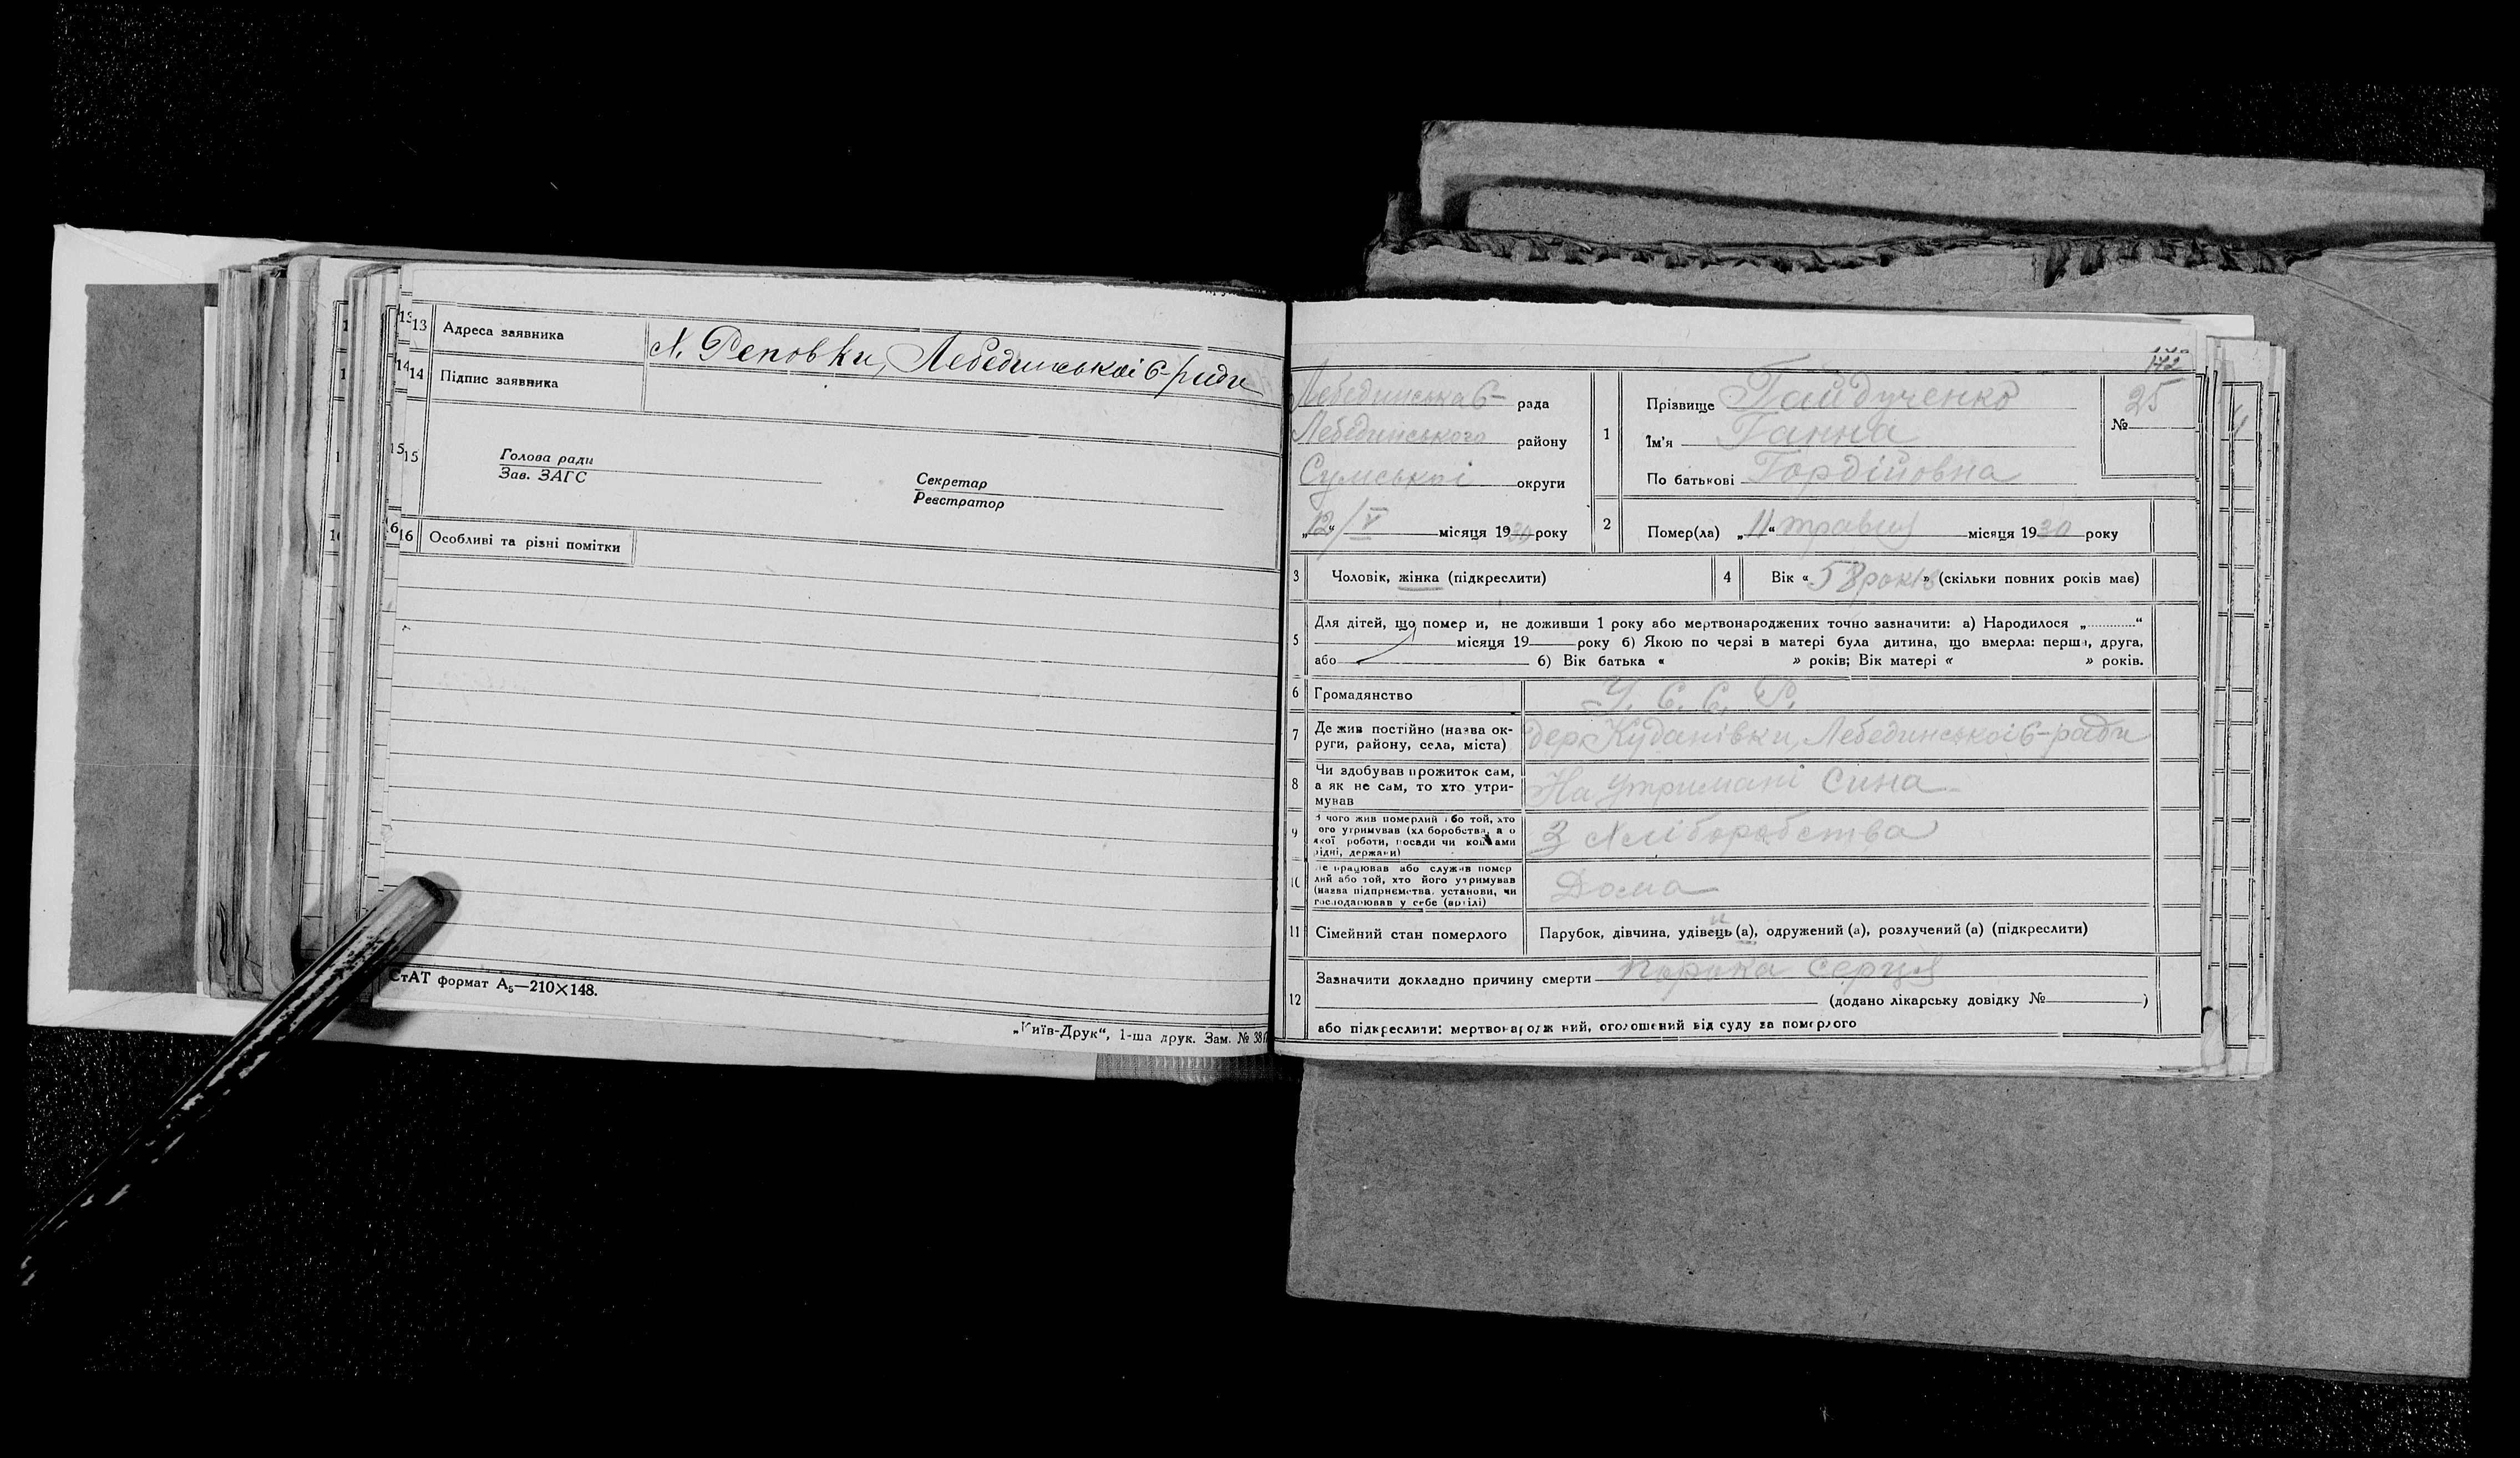 13 Адреса заявника х. Реповки, Лебединської С-ради
14 Підпис заявника
15
Голова ради
Зав. ЗАГС
Секретар
Реєстратор
16 Особливі та різні помітки
СтАТ формат А₅—210×148.
„Київ-Друк“, 1-ша друк. Зам. № 38
142
Лебединська С- рада
Лебединського району
Сумської округи
„12“/V місяця 1930 року
1 Прізвище Гайдученко
Ім'я Ганна
По батькові Гордіївна
№ 25
2 Помер(ла) „11“ травня місяця 1930 року
3 Чоловік, жінка (підкреслити)
4 Вік «58 років» (скільки повних років має)
5 Для дітей, що помер и, не доживши 1 року або мертвонароджених точно зазначити: а) Народилося „ “
місяця 19 року б) Якою по черзі в матері була дитина, що вмерла: перша, друга,
або б) Вік батька « » років; Вік матері « » років.
6 Громадянство У. С. С. Р.
7 Де жив постійно (назва округи, району, села, міста) дер. Куданівки, Лебединської С-ради
8 Чи здобував прожиток сам,
а як не сам, то хто утри-
мував На утримані сина
9 З чого жив померлий або той, хто
його утримував (хліборобства, а о
якої роботи, посади чи коштами
рідні, держави) З хліборобства
10 Де працював або служив помер
лий або той, хто його утримував
(назва підприємства, установи, чи
господарював у себе (артілі) Дома
11 Сімейний стан померлого Парубок, дівчина, удівець (а), одружений (а), розлучений (а) (підкреслити)
12 Зазначити докладно причину смерти порока серця
(додано лікарську довідку № )
або підкреслити: мертвонароджений, оголошений від суду за померлого